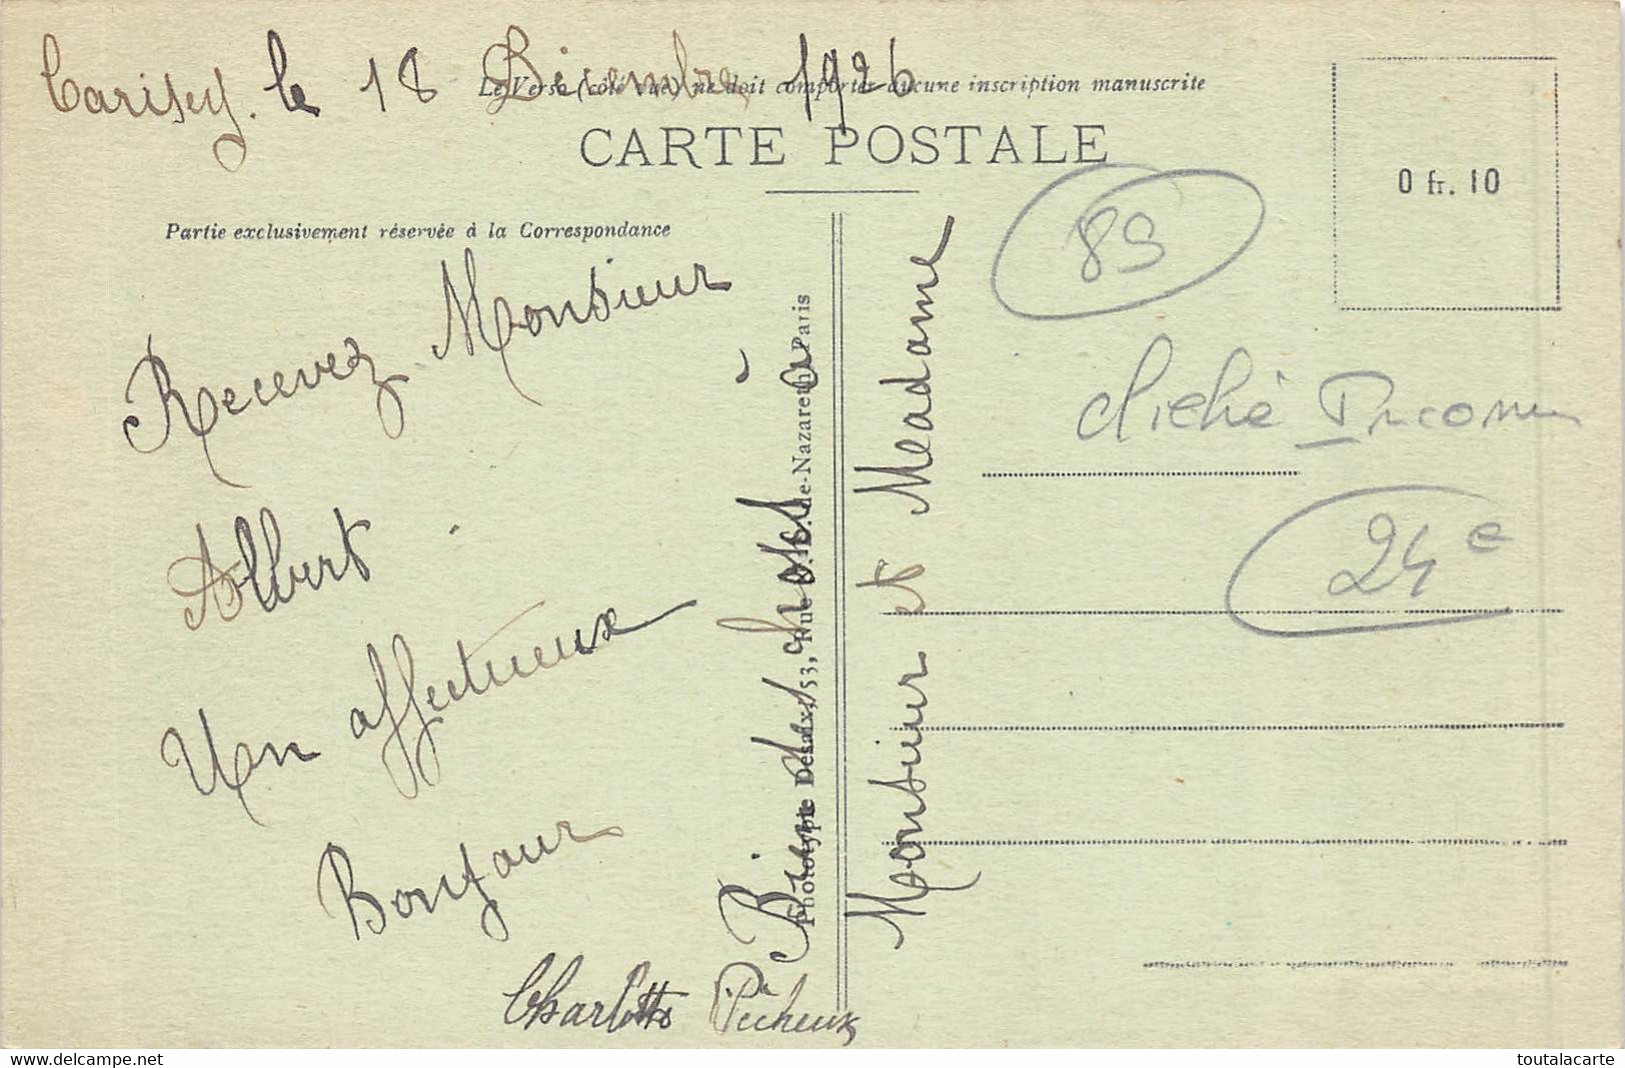 Carisey. le 18 Décembre 1926
Le Verso (côté vue) ne doit comporter aucune inscription manuscrite
CARTE POSTALE
0 fr. 10
Partie exclusivement réservée à la Correspondance
Recevez Monsieur
Albert
Un affectueux
Bonjour
Charlotte Pêcheux
Bien des choses à
Monsieur et Madame
Phototypie Desaix, 53, Rue N.-D.-de-Nazareth, Paris
89
cliché
24e
www.delcampe.net
toutalacarte